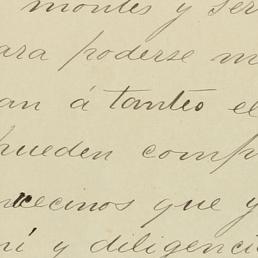 montes y ser
ara poderse m
an á tanteo el
pueden comp
vecinos que y
ni y diligenci